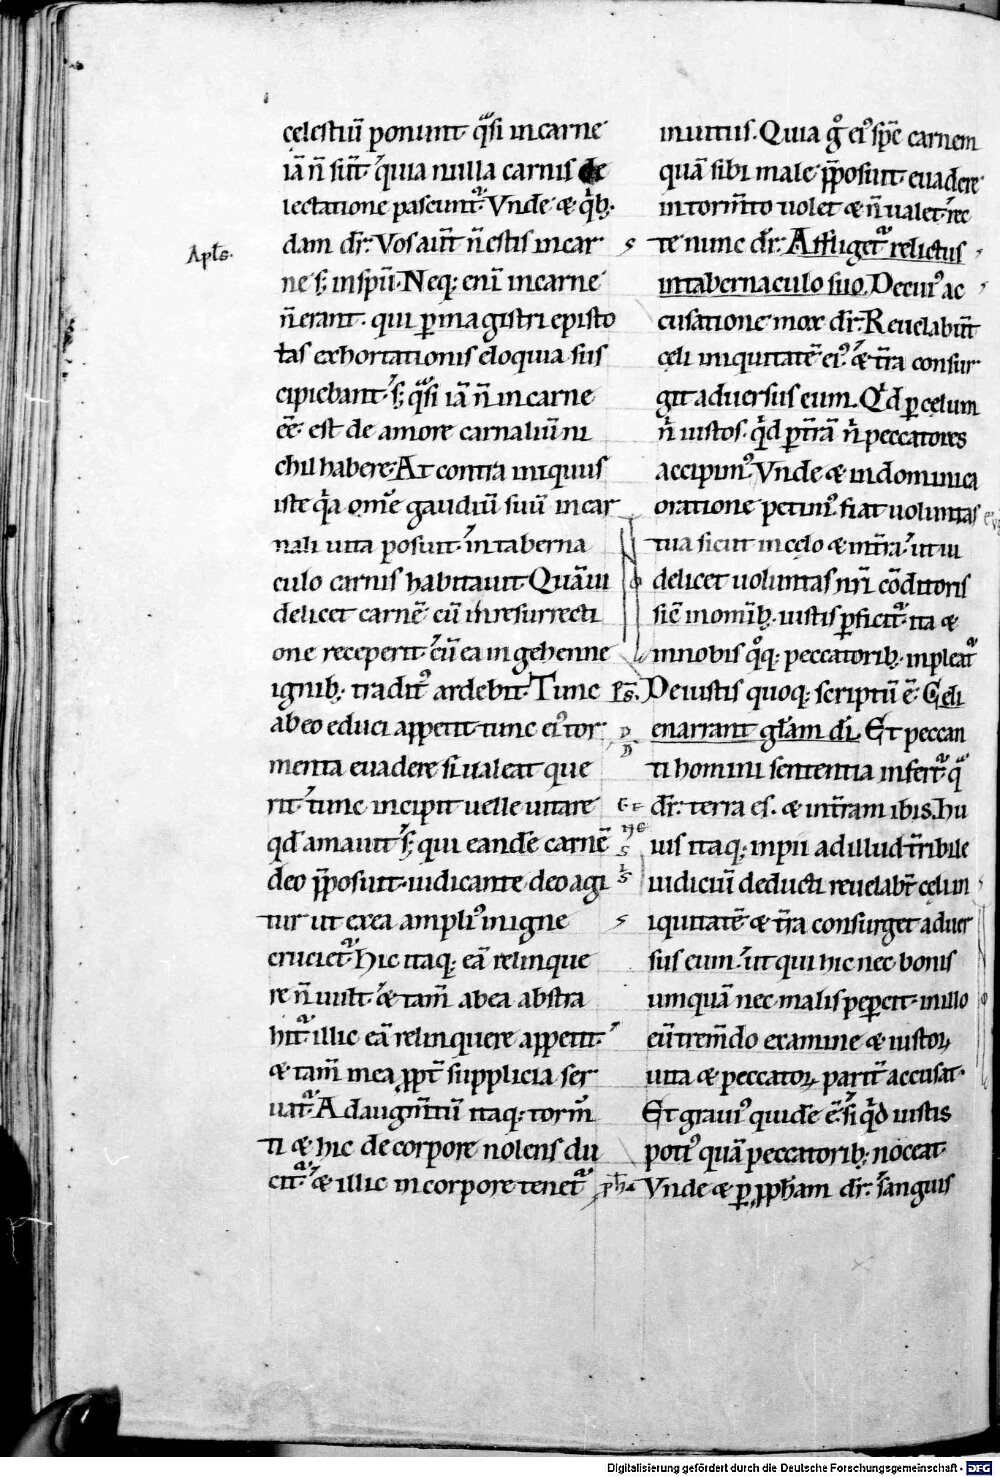 celestiū ponunt. q̄si in carne
iā n̄ sūt. quia nulla carnis de
lectatione pascunt̄. Vnde & qͥbꝫ
dam dr̄. Vos aut̄ n̄ estis in car
Apłs.
ne sꝫ in spū. Neqꝫ enī in carne
n̄ erant. qui ꝑ magistri episto
las exhortationis eloquia sus
cipiebant. sꝫ q̄si iā n̄ in carne
eē. est de amore carnaliū ni
chil habere. At contra iniquus
iste qͥa om̄e gaudiū suū in car
nali uita posuit. in taberna
culo carnis habitauit. Quā ui
delicet carnē cū in resurrecti
one receperit. cū ea in gehenne
ignibꝫ traditꝰ ardebit. Tunc
ab eo educi appetit. tunc eiꝰ tor
menta euadere si ualeat que
rit. tunc incipit uelle uitare
qd̄ amauit. sꝫ qui eandē carnē
deo p̄posuit. iudicante deo agi
tur ut ex ea ampliꝰ in igne
cruciet̄. Hic itaqꝫ eā relinque
re n̄ uult. & tam̄ ab ea abstra
hit̄. illic eā relinquere appetit.
& tam̄ in ea ꝓpt̄ supplicia ser
uat̄. Ad augm̄tū itaqꝫ torm̄
ti & hic de corpore nolens du
cit̄. & illic in corpore tenet̄
in uitiis. Quia gͦ eiꝰ spē carnem
quā sibi male p̄posuit. euadere
in torm̄to uolet & n̄ ualet. rec
te nunc dr̄. Affliget̄ relictus
in tabernaculo suo. De cuiꝰ ac
cusatione mox dr̄. Reuelabūt
celi iniquitatē eiꝰ. & t̄ra consur
git aduersus eum. Qͥd ꝑ celum
nͥ iustos. qͥd ꝑ t̄rā nͥ peccatores
accipimꝰ. Vnde & in dominica
oratione petimꝰ. fiat uoluntas
tua sicut in celo & in t̄ra. ut ui
delicet uoluntas nr̄i cōditoris
sic̄ in omībꝫ iustis ꝑficit̄. ita &
in nobis qͦqꝫ peccatoribꝫ inpleat̄
Ps. De iustis quoqꝫ scriptū ē. Celi
enarrant gl̄am di. Et peccan
ti homini sententia infert̄ q̄
dr̄. terra es. & in t̄ram ibis. Hu
ius itaqꝫ inpii ad illud t̄ribile
iudiciū deducti reuelabt̄ celū in
iquitatē & t̄ra consurget aduer
sus eum. ut qui hic nec bonis
umquā nec malis peꝑcit. in illo
eū trem̄do examine & iustoꝝ
uita & peccatoꝝ parit̄ accusat.
Et grauiꝰ quidē ē. si qͥd iustis
potiꝰ quā peccatoribꝫ noceat.
ph̄a Vnde & ꝑ ꝓph̄am dr̄. sanguis
Digitalisierung gefördert durch die Deutsche Forschungsgemeinschaft - DFG